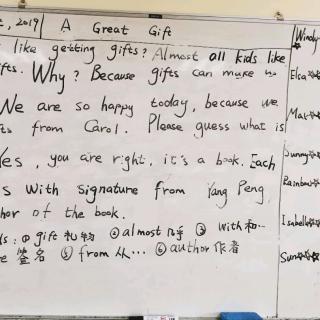 , 2019 A Great Gift
like getting gifts? Almost all kids like
fts. Why? Because gifts can make us
We are so happy today, because we
ts from Carol. Please guess what is
Yes, you are right, it's a book. Each
s with signature from Yang Peng,
hor of the book.
ds: ① gift 礼物 ② almost 几乎 ③ with 和…
e 签名 ⑤ from 从… ⑥ author 作者
Windy
Elsa
Max
Sunny
Rainbow
Isabella
Sun